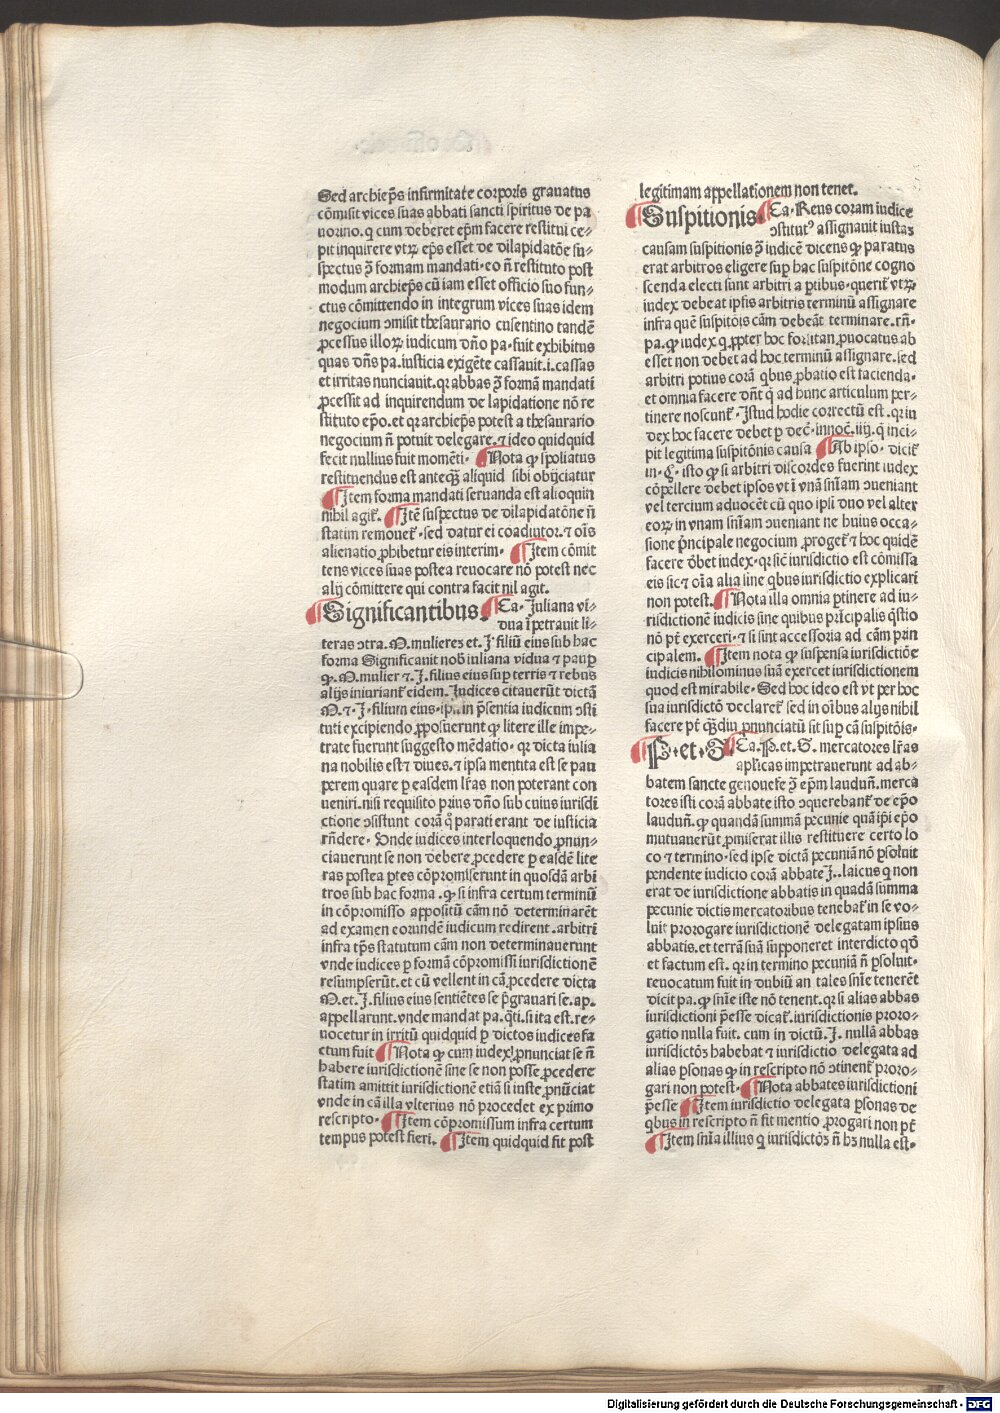 Sed archiep̄s infirmitate corporis grauatus
cōmisit vices suas abbati sancti spiritus de pa
norino. q cum deberet ep̄m facere restitui ce⸗
pit inquirere vtꝝ ep̄s esset de dilapidatōe su⸗
spectus ꝯ̄ formam mandati. eo n̄ restituto post
modum archiep̄s cū iam esset officio suo fun⸗
ctus cōmittendo in integrum vices suas idem
negocium ꝯmisit thesaurario cusentino tandē
ꝓcessus illoꝝ iudicum dn̄o pa. fuit exhibitus
quas dn̄s pa. iusticia exigēte cassauit .i. cassas
et irritas nunciauit. qꝛ abbas ꝯ̄ formā mandati
ꝓcessit ad inquirendum de lapidatione nō re
stituto ep̄o. et qꝛ archiep̄s potest a thesaurario
negocium n̄ potuit delegare. ⁊ ideo quidquid
fecit nullius fuit momēti. Nota ꝙ spoliatus
restituendus est anteqꝫ aliquid sibi obijciatur
Item forma mandati seruanda est alioquin
nibil agit᷑. Itē suspectus de dilapidatōne n̄
statim remouet᷑. sed datur ei coadiutor. ⁊ oīs
alienatio ꝓhibetur eis interim. Item cōmit
tens vices suas postea reuocare nō potest nec
alij cōmittere qui contra facit nil agit.
Significantibus. Ca. Juliana vi⸗
dua īpetrauit li⸗
teras ꝯtra. M. mulieres et. J. filiū eius sub hac
forma Significanit nob̄ iuliana vidua ⁊ pauꝑ
ꝙ. M. mulier ⁊. J. filius eius suꝑ terris ⁊ rebus
alijs iniuriant᷑ eidem. Iudices citauerūt dictā
M. ⁊. J. filium eius. ip̄i. in p̄sentia iudicum ꝯsti
tuti excipiendo ꝓposuerunt ꝙ litere ille impe⸗
trate fuerunt suggesto mēdatio. qꝛ dicta iulia
na nobilis est ⁊ diues. ⁊ ipsa mentita est se pau
perem quare p easdem lr̄as non poterant con
ueniri. nisi requisito prius dn̄o sub cuius iurisdi
ctione ꝯsistunt corā q̊ parati erant de iusticia
rn̄dere. Vnde iudices interloquendo ꝓnun⸗
ciauerunt se non debere ꝓcedere ꝑ easdē lite
ras postea ꝑtes cōpromiserunt in quosdā arbi
tros sub hac forma. ꝙ si infra certum terminū
in cōpromisso appositū cām nō determinarēt
ad examen eorundē iudicum redirent. arbitri
infra tp̄s statutum cām non determinauerunt
vnde iudices ꝑ formā cōpromissi iurisdictionē
resumpserūt. et cū vellent in cā ꝓcedere dicta
M. et. J. filius eius sentiētes se p̄grauari se. ap.
appellarunt. vnde mandat pa. qͭti. si ita est. re⸗
uocetur in irritū quidquid ꝑ dictos iudices fa
ctum fuit Nota ꝙ cum iudex ꝓnunciat se n̄
habere iurisdictionē siue se non posse ꝓcedere
statim amittit iurisdictionē etiā si iuste ꝓnūciat
vnde in cā illa vlterius nō procedet ex primo
rescripto. Item cōpromissum infra certum
tempus potest fieri. Item quidquid fit post
legitimam appellationem non tenet.
Suspitionis. Ca. Reus coram iudice
ꝯstitutꝰ assignauit iustaꝫ
causam suspitionis ꝯ̄ iudicē dicens ꝙ paratus
erat arbitros eligere suꝑ hac suspitōne cogno
scenda electi sunt arbitri a ꝑtibus. querit᷑ vtꝝ
iudex debeat ipsis arbitris terminū assignare
infra quē suspitōis cām debeāt terminare. rn̄.
pa. ꝙ iudex q ꝓpter hoc forsitan ꝓuocatus ab
esset non debet ad hoc terminū assignare. sed
arbitri potius corā qbus ꝓbatio est facienda.
et omnia facere dn̄t q̄ ad hunc articulum per⸗
tinere noscunt᷑. Istud hodie correctū est. qꝛ iu
dex hoc facere debet ꝑ dec̄. innoc̄. iiij. q̄ inci⸗
pit legitima suspitōnis causa Ab ipso. dicit᷑
in. C. isto ꝙ si arbitri discordes fuerint iudex
cōpellere debet ipsos vt ī vnā sn̄iam ꝯueniant
vel tercium aduocēt cū quo ipsi duo vel alter
eoꝝ in vnam sn̄iam ꝯueniant ne huius occa⸗
sione p̄ncipale negocium ꝓroget᷑ ⁊ hoc quidē
facere ꝺ̄bet iudex. qꝛ sic̄ iurisdictio est cōmissa
eis sic ⁊ oīa alia sine qbus iurisdictio explicari
non potest. Nota illa omnia ꝑtinere ad iu⸗
risdictionē iudicis sine quibus prīcipalis q̄stio
nō pt̄ exerceri. ⁊ si sint accessoria ad cām prin
cipalem. Item nota ꝙ suspensa iurisdictiōe
iudicis nihilominus suā exercet iurisdictionem
quod est mirabile. Sed hoc ideo est vt per hoc
sua iurisdictō declaret᷑ sed in oībus alijs nibil
facere pt̄ qͣꝫdiu ꝓnunciatū sit suꝑ cā suspitōis.
P. et. S. Ca. P. et. S. mercatores lr̄as
apl̄icas impetrauerunt ad ab⸗
batem sancte genouefe ꝯ̄ ep̄m laudun̄. merca
tores isti corā abbate isto ꝯquerebant᷑ de ep̄o
laudun̄. ꝙ quandā summā pecunie quā ip̄i ep̄o
mutuauerūt ꝓmiserat illis restituere certo lo
co ⁊ termino. sed ipse dictā pecuniā nō ꝑsoluit
pendente iudicio corā abbate J.. laicus q non
erat de iurisdictione abbatis in quadā summa
pecunie dictis mercatoribus tenebat᷑ in se vo⸗
luit prorogare iurisdictionē delegatam ipsius
abbatis. et terrā suā supponeret interdicto qꝺ̄
et factum est. qꝛ in termino pecuniā n̄ ꝑsoluit.
reuocatum fuit in dubiū an tales sn̄ie tenerēt
dicit pa. ꝙ sn̄ie iste nō tenent. qꝛ si alias abbas
iurisdictioni p̄esse dicat᷑. iurisdictionis proro⸗
gatio nulla fuit. cum in dictū. J. nullā abbas
iurisdictōꝫ habebat ⁊ iurisdictio delegata ad
alias ꝑsonas ꝙ in rescripto nō ꝯtinent᷑ proro⸗
gari non potest. Nota abbates iurisdictioni
p̄esse Item iurisdictio delegata ꝑsonas de
qbus in rescripto n̄ fit mentio ꝓrogari non pt̄
Item sn̄ia illius q iurisdictōꝫ n̄ hꝫ nulla est.
Digitalisierung gefördert durch die Deutsche Forschungsgemeinschaft - DFG